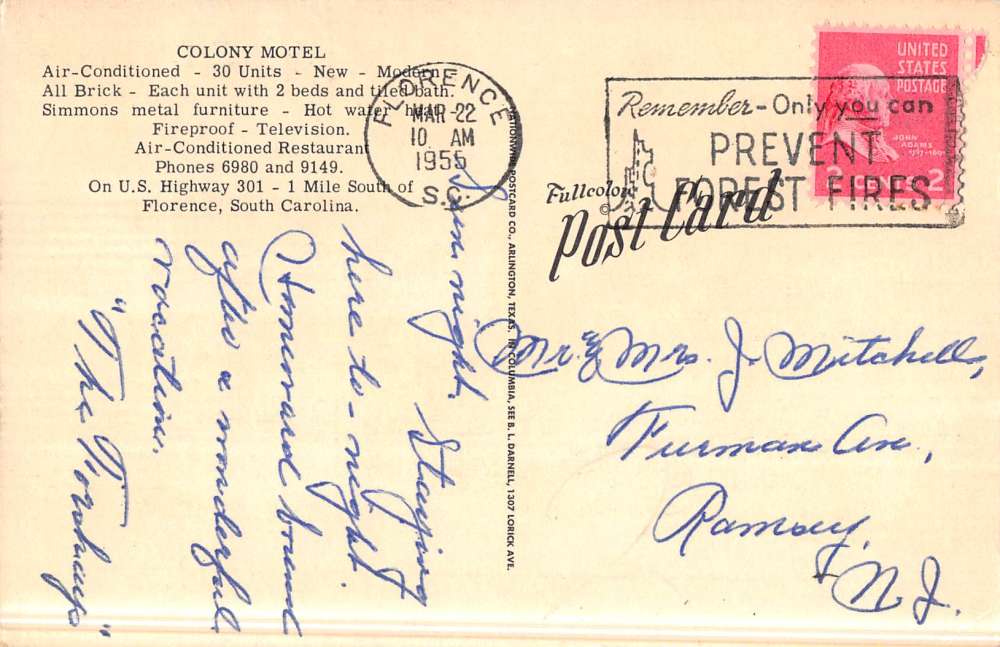 COLONY MOTEL
Air-Conditioned - 30 Units - New - Modern -
All Brick - Each unit with 2 beds and tiled bath.
Simmons metal furniture - Hot water heat -
Fireproof - Television.
Air-Conditioned Restaurant
Phones 6980 and 9149.
On U.S. Highway 301 - 1 Mile South of
Florence, South Carolina.
FLORENCE
MAR 22
10 AM
1955
S.C.
Remember - Only you can
PREVENT
FOREST FIRES
UNITED
STATES
POSTAGE
JOHN
ADAMS
2 CENTS 2
Fullcolor
Post Card
NATIONWIDE POSTCARD CO., ARLINGTON, TEXAS. IN COLUMBIA, SEE B. L. DARNELL, 1307 LORICK AVE.
Sun. night.
Staying
here to-night.
Homeward bound
after a wonderful
vacation.
"The
Mr. & Mrs. J. Mitchell,
Furman Ave.,
Ramsey,
N.J.